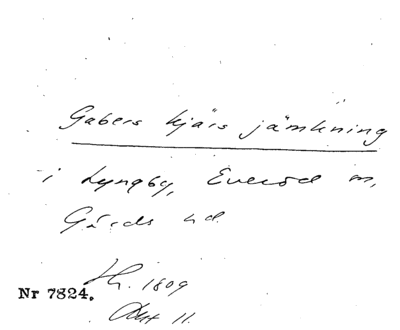 Gabers kjärs jämkning
i Lyngby, Everöd m,
Gärds hd.
Hh. 1809
Nr 7824.
Akt 11.